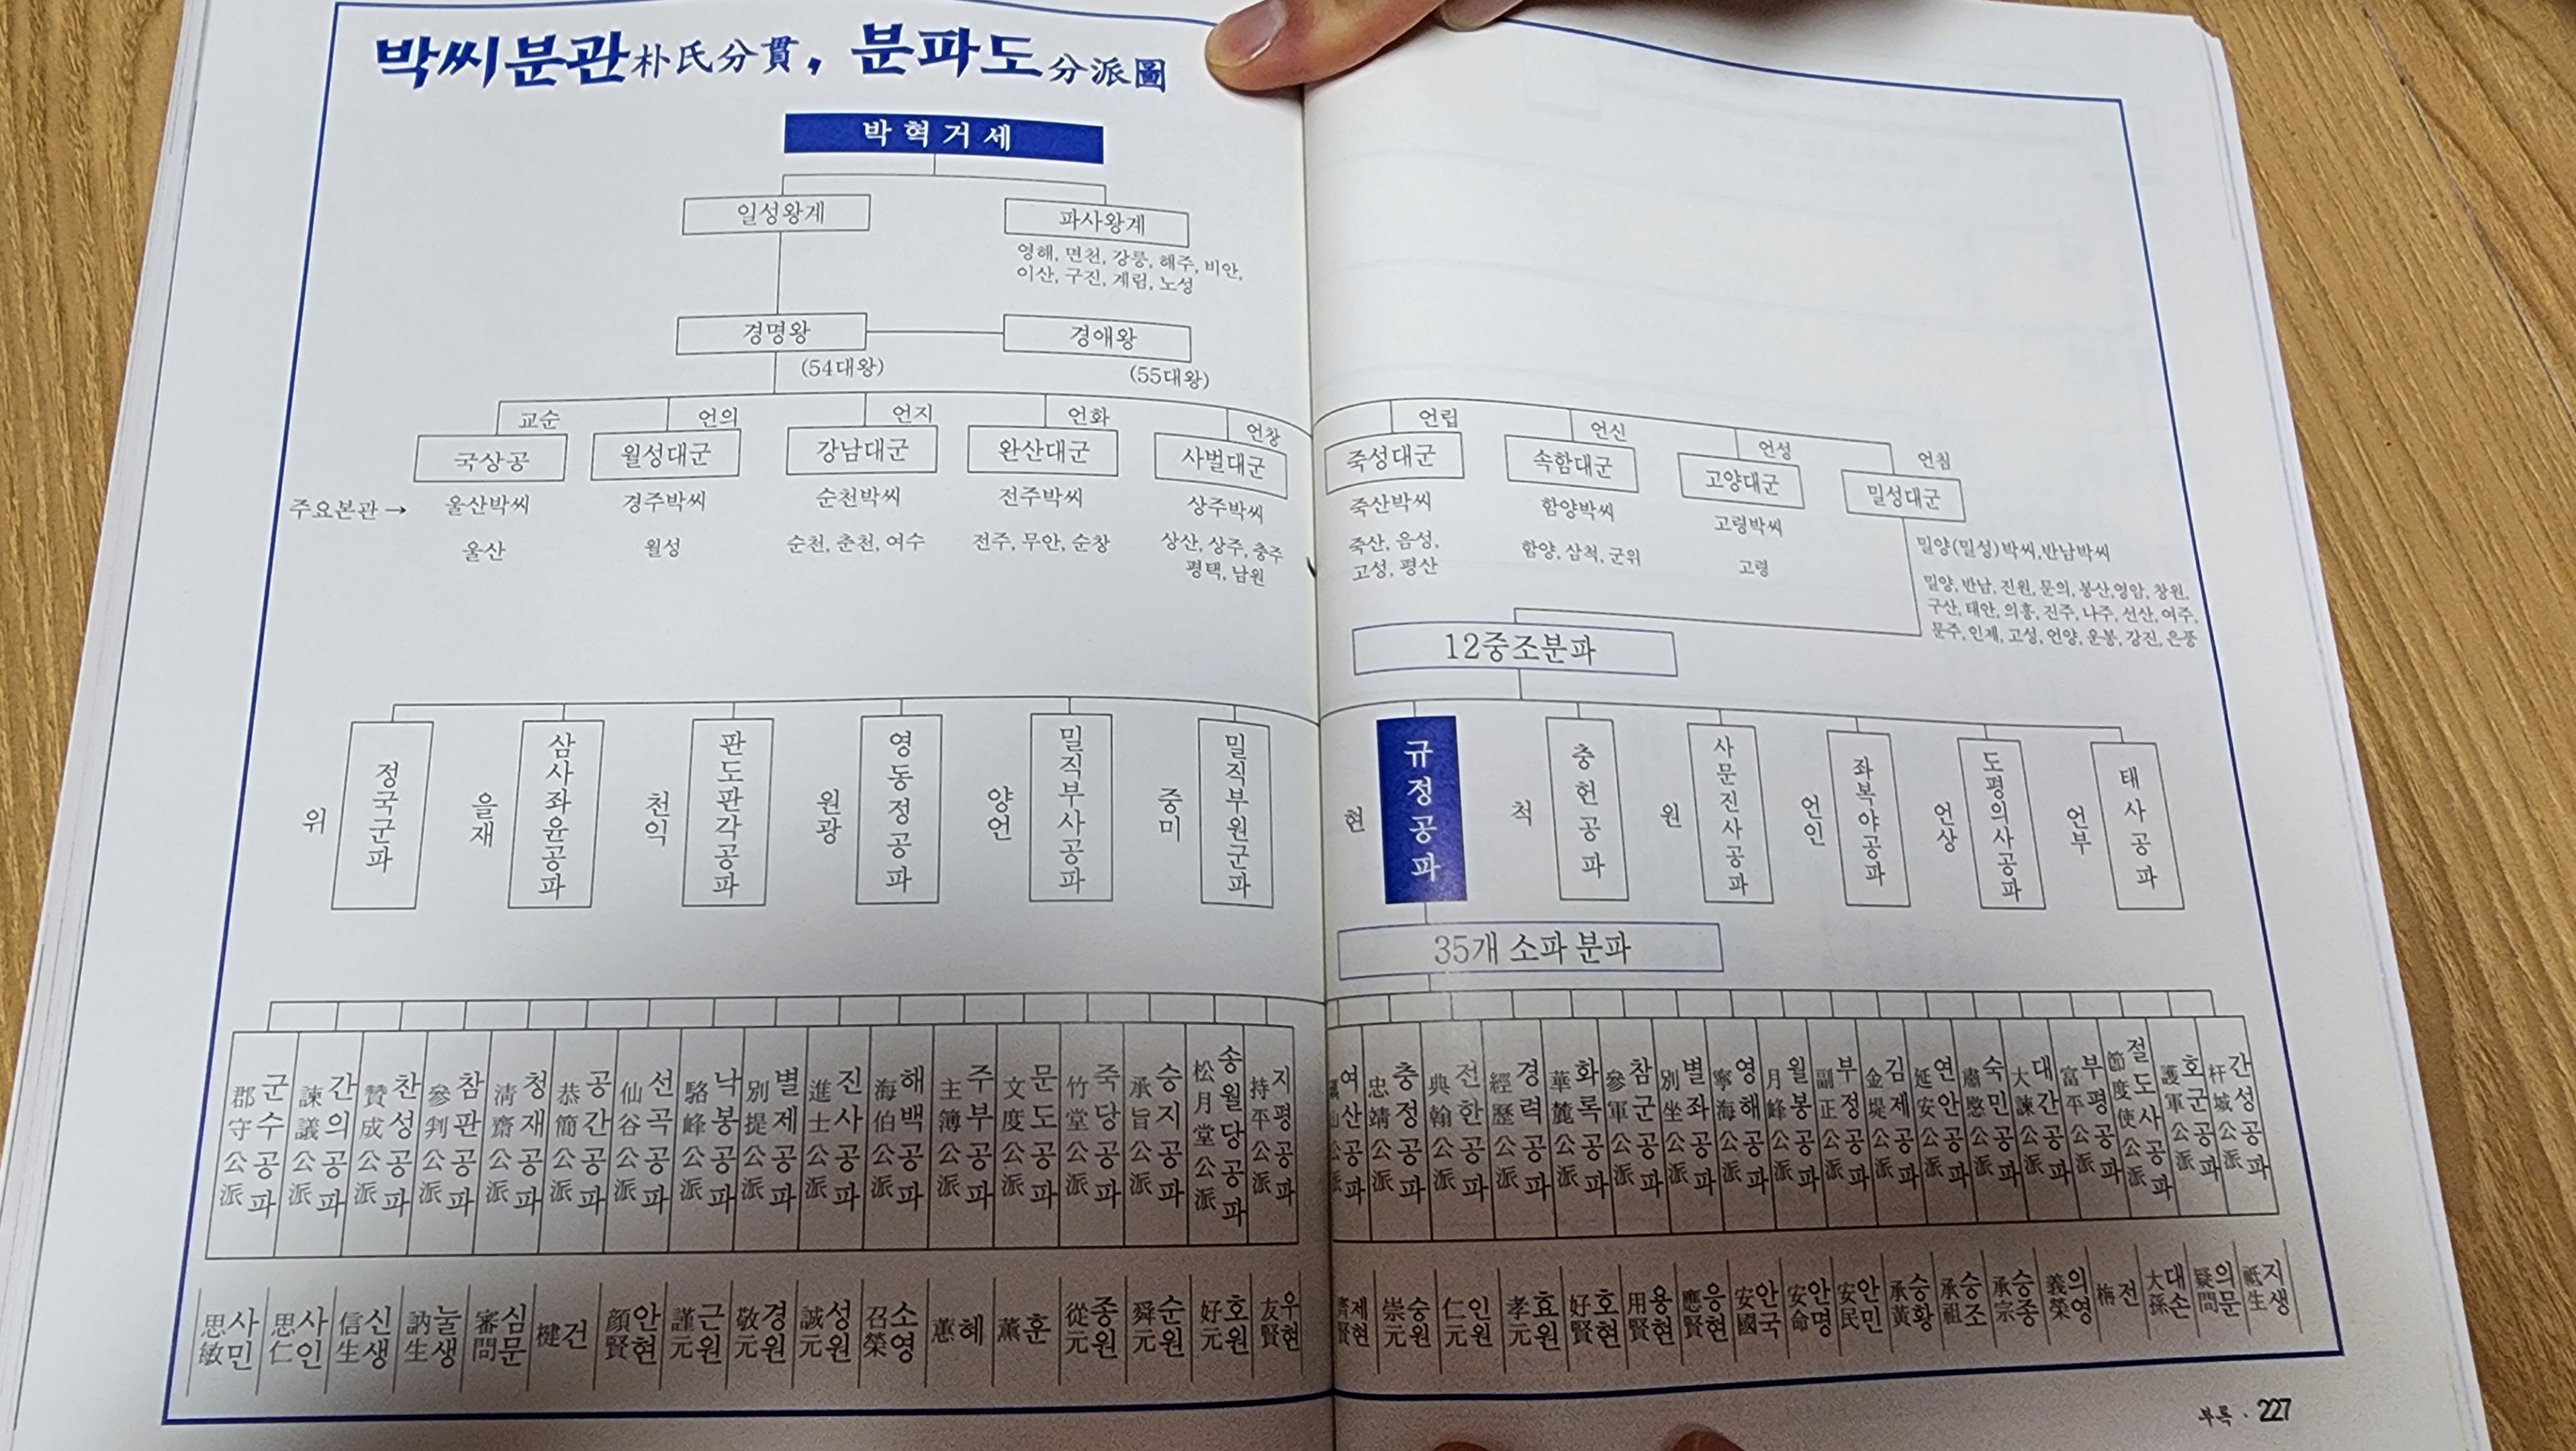 박씨분관朴氏分貫, 분파도分派圖
박혁거세
일성왕계
파사왕계
영해, 면천, 강릉, 해주, 비안,
이산, 구진, 계림, 노성
경명왕
(54대왕)
경애왕
(55대왕)
교순 언의 언지 언화 언창 언립 언신 언성 언침
국상공 월성대군 강남대군 완산대군 사벌대군 죽성대군 속함대군 고양대군 밀성대군
주요본관→ 울산박씨 경주박씨 순천박씨 전주박씨 상주박씨 죽산박씨 함양박씨 고령박씨 밀양(밀성)박씨,반남박씨
울산
월성
순천, 춘천, 여수
전주, 무안, 순창
상산, 상주, 충주
평택, 남원
죽산, 음성,
고성, 평산
함양, 삼척, 군위
고령
밀양, 반남, 진원, 문의, 봉산,영암, 창원,
구산, 태안, 의흥, 진주, 나주, 선산, 여주,
문주, 인제, 고성, 언양, 운봉, 강진, 은풍
12중조분파
위 정국군파
을재 삼사좌윤공파
천익 판도판각공파
원광 영동정공파
양언 밀직부사공파
중미 밀직부원군파
현 규정공파
척 충헌공파
원 사문진사공파
언인 좌복야공파
언상 도평의사공파
언부 태사공파
35개 소파 분파
군수공파 郡守公派
간의공파 諫議公派
찬성공파 贊成公派
참판공파 參判公派
청재공파 淸齋公派
공간공파 恭簡公派
선곡공파 仙谷公派
낙봉공파 駱峰公派
별제공파 別提公派
진사공파 進士公派
해백공파 海伯公派
주부공파 主簿公派
문도공파 文度公派
죽당공파 竹堂公派
승지공파 承旨公派
송월당공파 松月堂公派
지평공파 持平公派
여산공파
충정공파 忠靖公派
전한공파 典翰公派
경력공파 經歷公派
화록공파 華麓公派
참군공파 參軍公派
별좌공파 別坐公派
영해공파 寧海公派
월봉공파 月峰公派
부정공파 副正公派
김제공파 金堤公派
연안공파 延安公派
숙민공파 肅愍公派
대간공파 大諫公派
부평공파 富平公派
절도사공파 節度使公派
호군공파 護軍公派
간성공파 杆城公派
사민 思敏
사인 思仁
신생 信生
눌생 訥生
심문 審問
건 楗
안현 顔賢
근원 謹元
경원 敬元
성원 誠元
소영 召榮
혜 蕙
훈 薰
종원 從元
순원 舜元
호원 好元
우현 友賢
제현 齊賢
숭원 崇元
인원 仁元
효원 孝元
호현 好賢
용현 用賢
응현 應賢
안국 安國
안명 安命
안민 安民
승황 承黃
승조 承祖
승종 承宗
의영 義榮
전
대손 大孫
의문 疑問
지생 祗生
부록 · 227